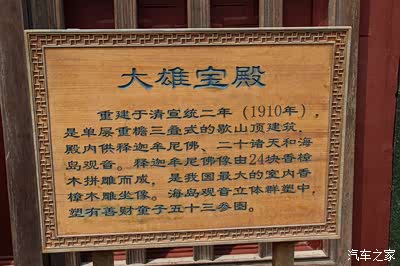 大雄宝殿
重建于清宣统二年（1910年），
是单层重檐三叠式的歇山顶建筑，
殿内供释迦牟尼佛、二十诸天和海
岛观音。释迦牟尼佛像由24块香樟
木拼雕而成，是我国最大的室内香
樟木雕坐像。海岛观音立体群塑中，
塑有善财童子五十三参图。
汽车之家